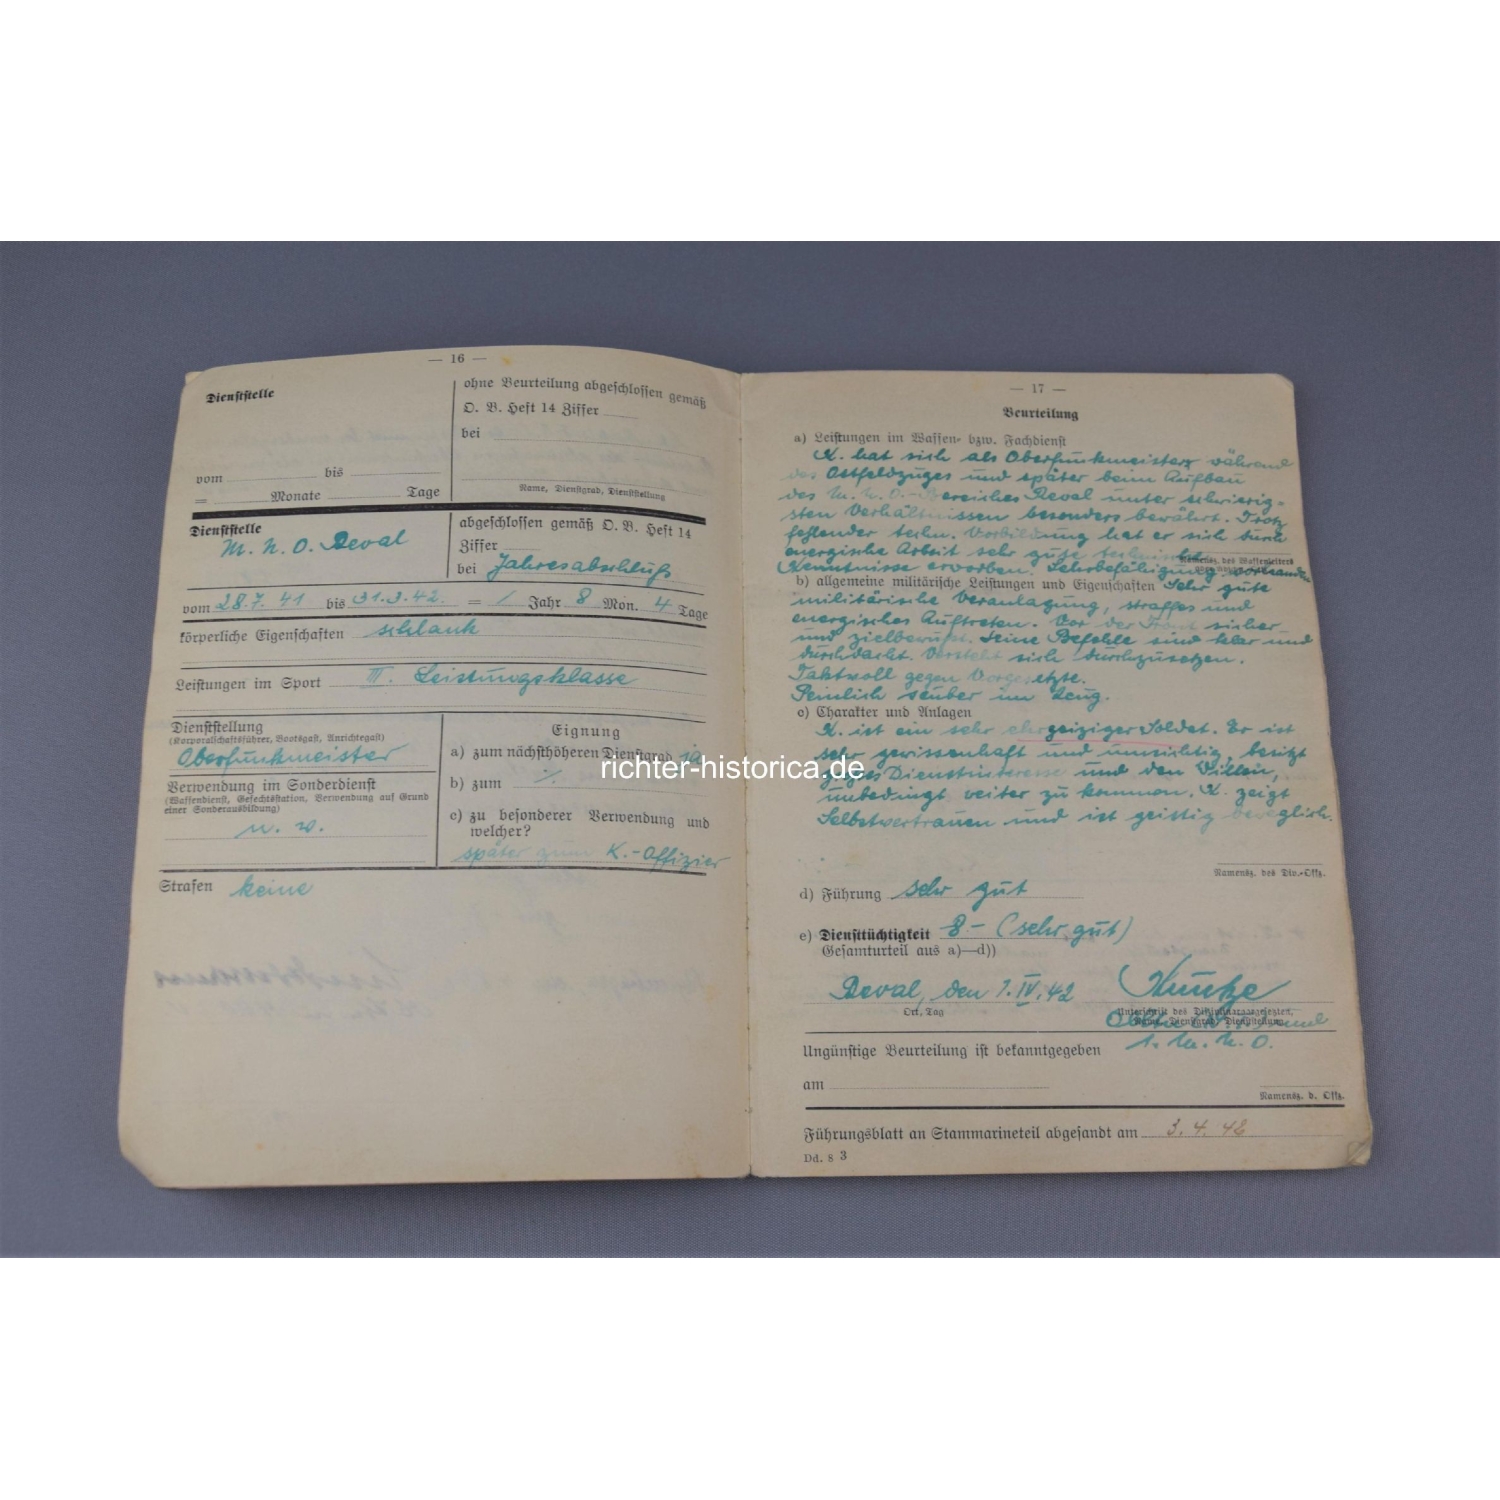 — 16 —
Dienststelle
ohne Beurteilung abgeschlossen gemäß
D. B. Heft 14 Ziffer
bei
vom bis
= Monate Tage
Name, Dienstgrad, Dienststellung
Dienststelle
M. N. O. Reval
abgeschlossen gemäß D. B. Heft 14
Ziffer
bei Jahresabschluß
vom 28.7.41 bis 31.3.42. = / Jahr 8 Mon. 4 Tage
körperliche Eigenschaften schlank
Leistungen im Sport III. Leistungsklasse
Dienststellung
(Korporalschaftsführer, Bootsgast, Anrichtegast)
Oberfunkmeister
Verwendung im Sonderdienst
(Waffendienst, Gefechtsstation, Verwendung auf Grund
einer Sonderausbildung)
w. v.
Eignung
a) zum nächsthöheren Dienstgrad ja
b) zum ./.
c) zu besonderer Verwendung und
welcher?
später zum K.-Offizier
Strafen keine
— 17 —
Beurteilung
a) Leistungen im Waffen- bzw. Fachdienst
K. hat sich als Oberfunkmeister während
des Ostfeldzuges und später beim Aufbau
des M. N. O.-Bereiches Reval unter schwierig-
sten Verhältnissen besonders bewährt. Trotz
fehlender techn. Vorbildung hat er sich durch
energische Arbeit sehr gute technische
Kenntnisse erworben. Lehrbefähigung vorhanden
Namensz. des Waffenleiters
b) allgemeine militärische Leistungen und Eigenschaften Sehr gute
militärische Veranlagung, straffes und
energisches Auftreten. Vor der Front sicher
und zielbewußt. Seine Befehle sind klar und
durchdacht. Versteht sich durchzusetzen.
Taktvoll gegen Vorgesetzte.
Peinlich sauber im Zeug.
c) Charakter und Anlagen
K. ist ein sehr ehrgeiziger Soldat. Er ist
sehr gewissenhaft und umsichtig, besitzt
Dienstinteresse und den Willen,
unbedingt weiter zu kommen. K. zeigt
Selbstvertrauen und ist geistig beweglich.
Namensz. des Div.-Offz.
d) Führung sehr gut
e) Diensttüchtigkeit 8- (sehr gut)
Gesamturteil aus a)—d))
Reval, den 1.IV.42
Ort, Tag
Unterschrift des Disziplinarvorgesetzten,
Name, Dienstgrad, Dienststellung
1. M. N. O.
Ungünstige Beurteilung ist bekanntgegeben
am
Namensz. d. Offz.
Führungsblatt an Stammarineteil abgesandt am 3.4.42
Dd. 8 3
richter-historica.de